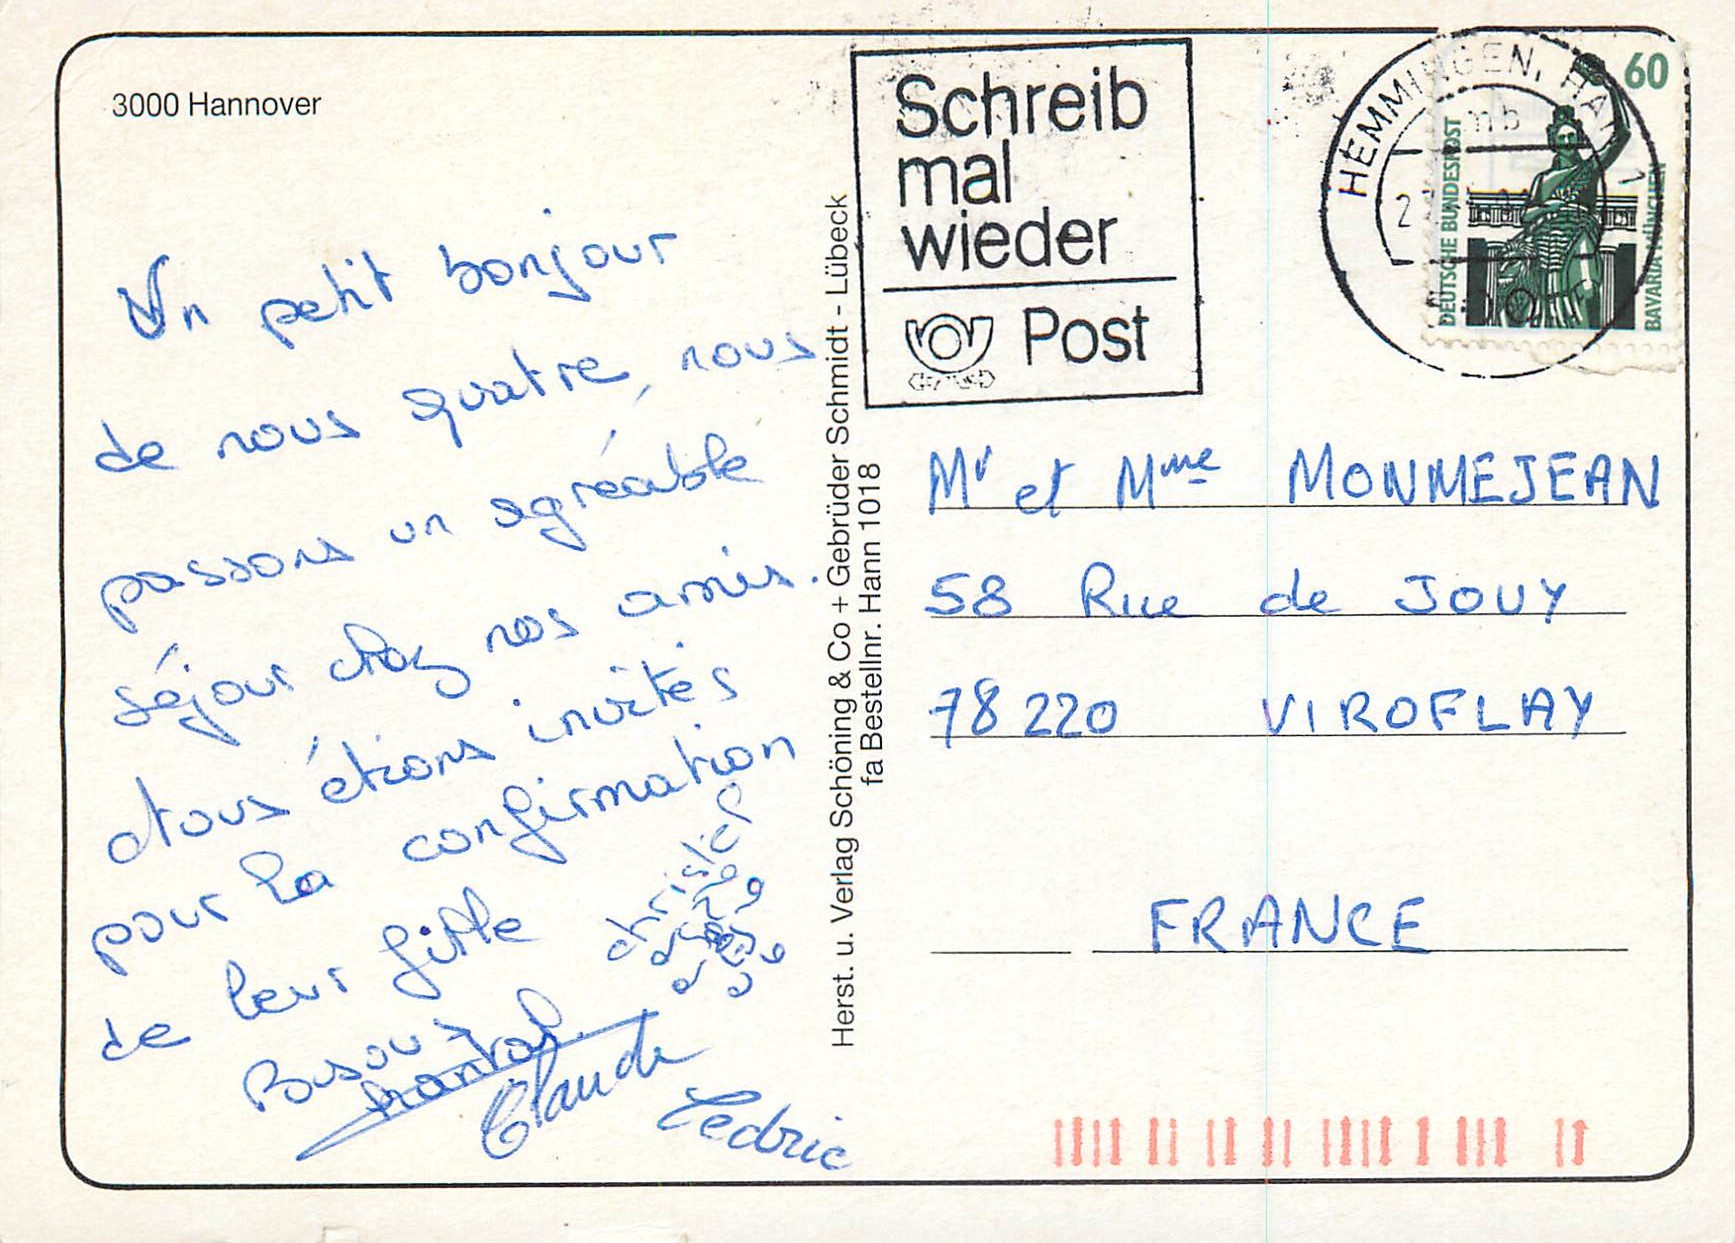 3000 Hannover
Un petit bonjour
de nous quatre, nous
passons un agréable
séjour chez nos amis.
Nous étions invités
pour la confirmation
de leur fille
Bisous
Chantal
Claude
Cedric
Christel
Herst. u. Verlag Schöning & Co + Gebrüder Schmidt - Lübeck
fa Bestellnr. Hann 1018
Schreib
mal
wieder
Post
HEMMINGEN, HAN
60
DEUTSCHE BUNDESPOST
BAVARIA MÜNCHEN
Mr et Mme MONMEJEAN
58 Rue de JOUY
78220 VIROFLAY
FRANCE